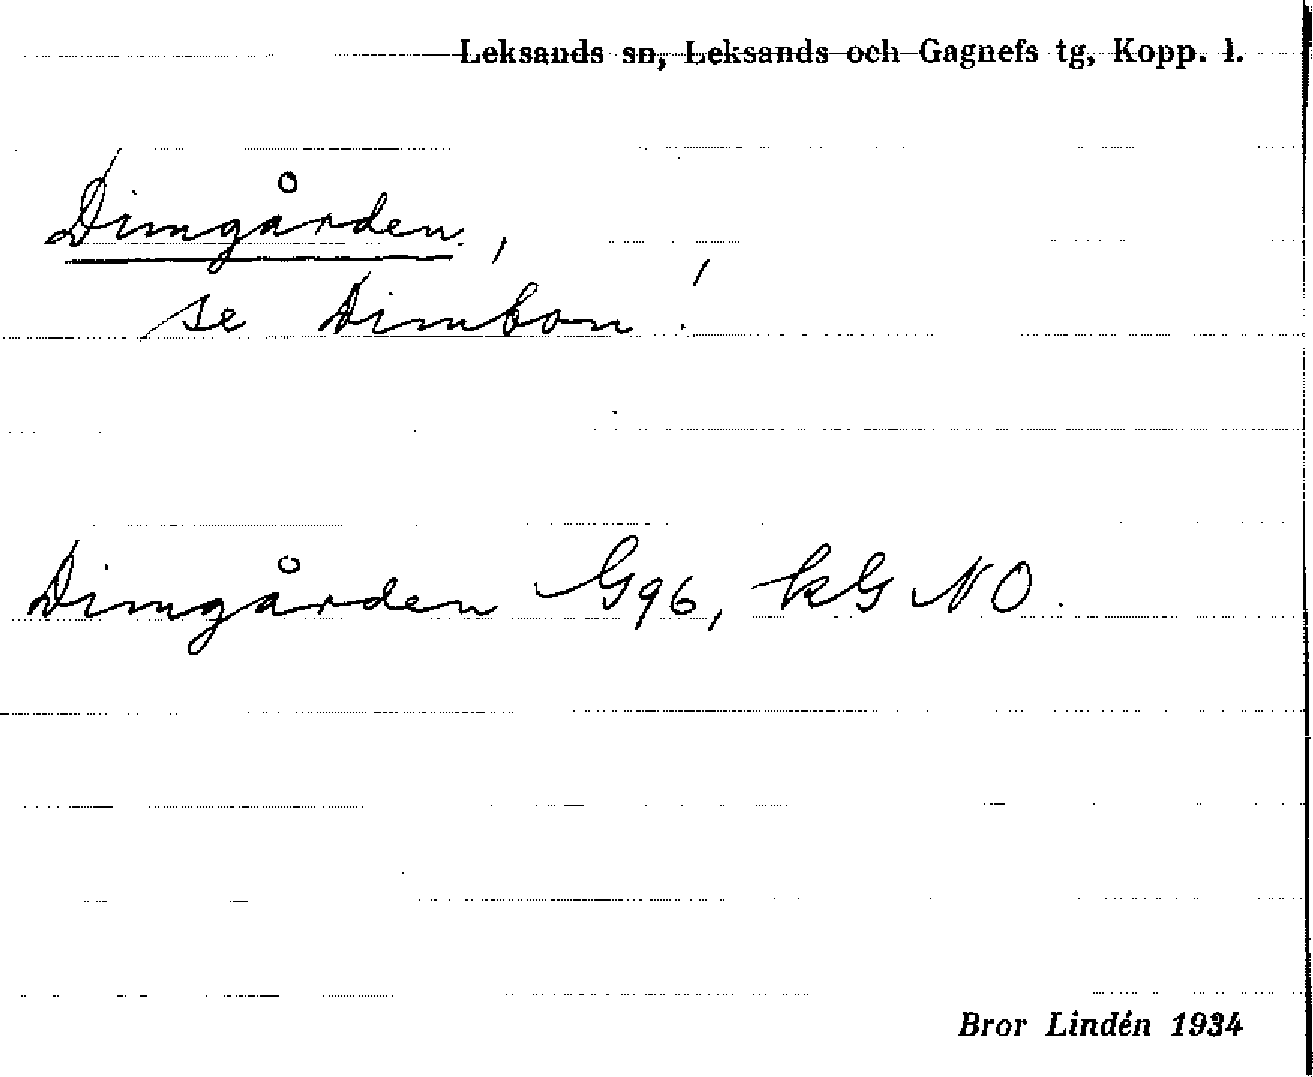 Leksands sn, Leksands och Gagnefs tg, Kopp. l.
Dimgården,
se Dimbon!
Dimgården G96, kG NO.
Bror Lindén 1934